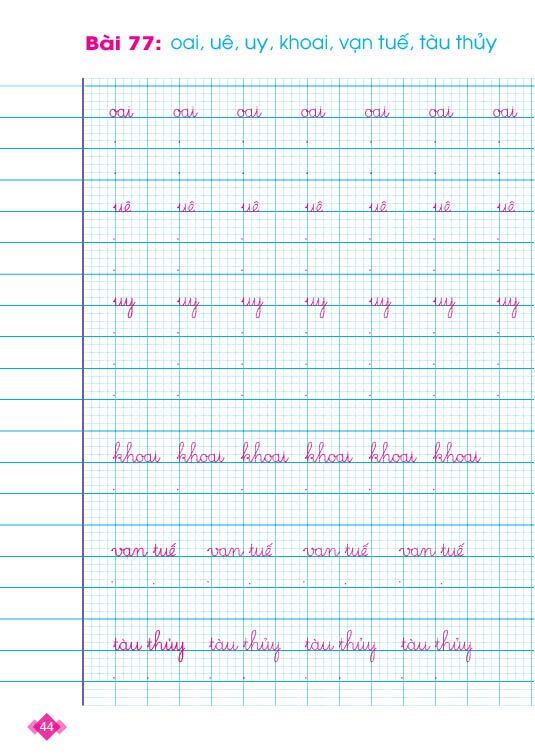 Bài 77: oai, uê, uy, khoai, vạn tuế, tàu thủy
oai oai oai oai oai oai oai
uê uê uê uê uê uê uê
uy uy uy uy uy uy uy
khoai khoai khoai khoai khoai khoai
vạn tuế vạn tuế vạn tuế vạn tuế
tàu thủy tàu thủy tàu thủy tàu thủy
44